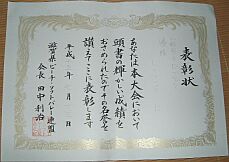 表彰状
あなたは本大会において
頭書の輝かしい成績を
おさめられたのでその名誉を
讃えてここに表彰します
平成 年 月 日
滋賀県ビーチ・ソフトバレー連盟
会長 田中利治